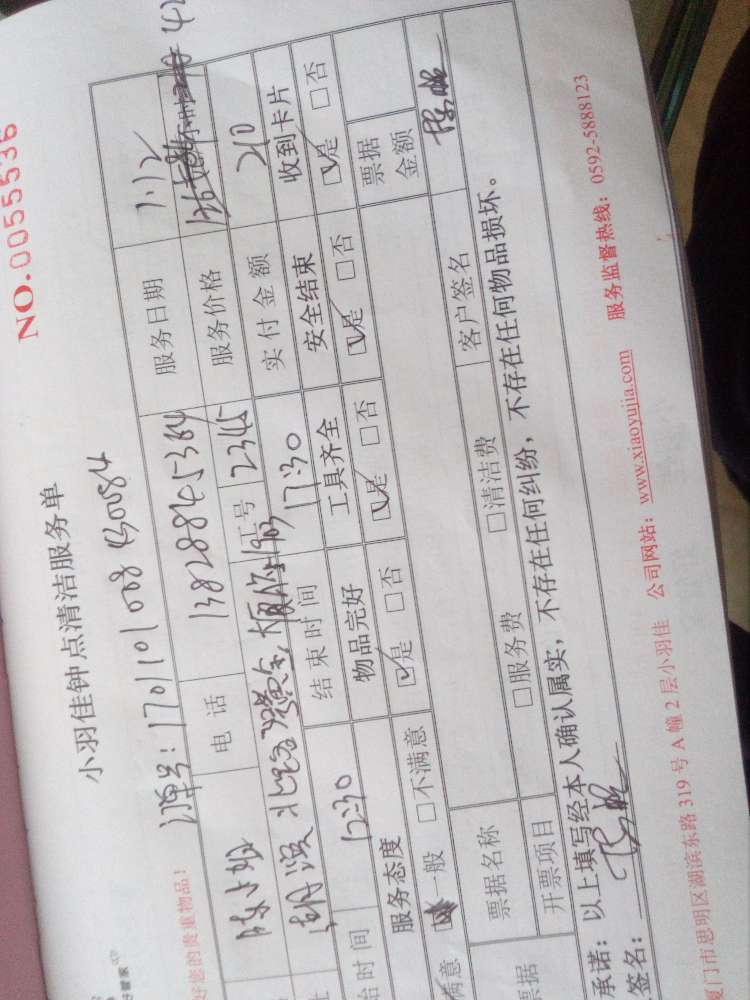 NO.0055536
小羽佳钟点清洁服务单
好您的贵重物品!
订单号:170110108430084
陈小姐 电话 13828845384 服务日期 1.12
工号 2345 服务价格
实付金额 210
始时间 12:30 结束时间 17:30
服务态度 物品完好 工具齐全 安全结束 收到卡片
满意 □一般 □不满意 ☑是 □否 ☑是 □否 ☑是 □否 ☑是 □否
票据 票据名称 票据金额
开票项目 □服务费 □清洁费 客户签名
承诺:以上填写经本人确认属实,不存在任何纠纷,不存在任何物品损坏。
签名:
厦门市思明区湖滨东路319号A幢2层小羽佳 公司网站:www.xiaoyujia.com 服务监督热线:0592-5888123